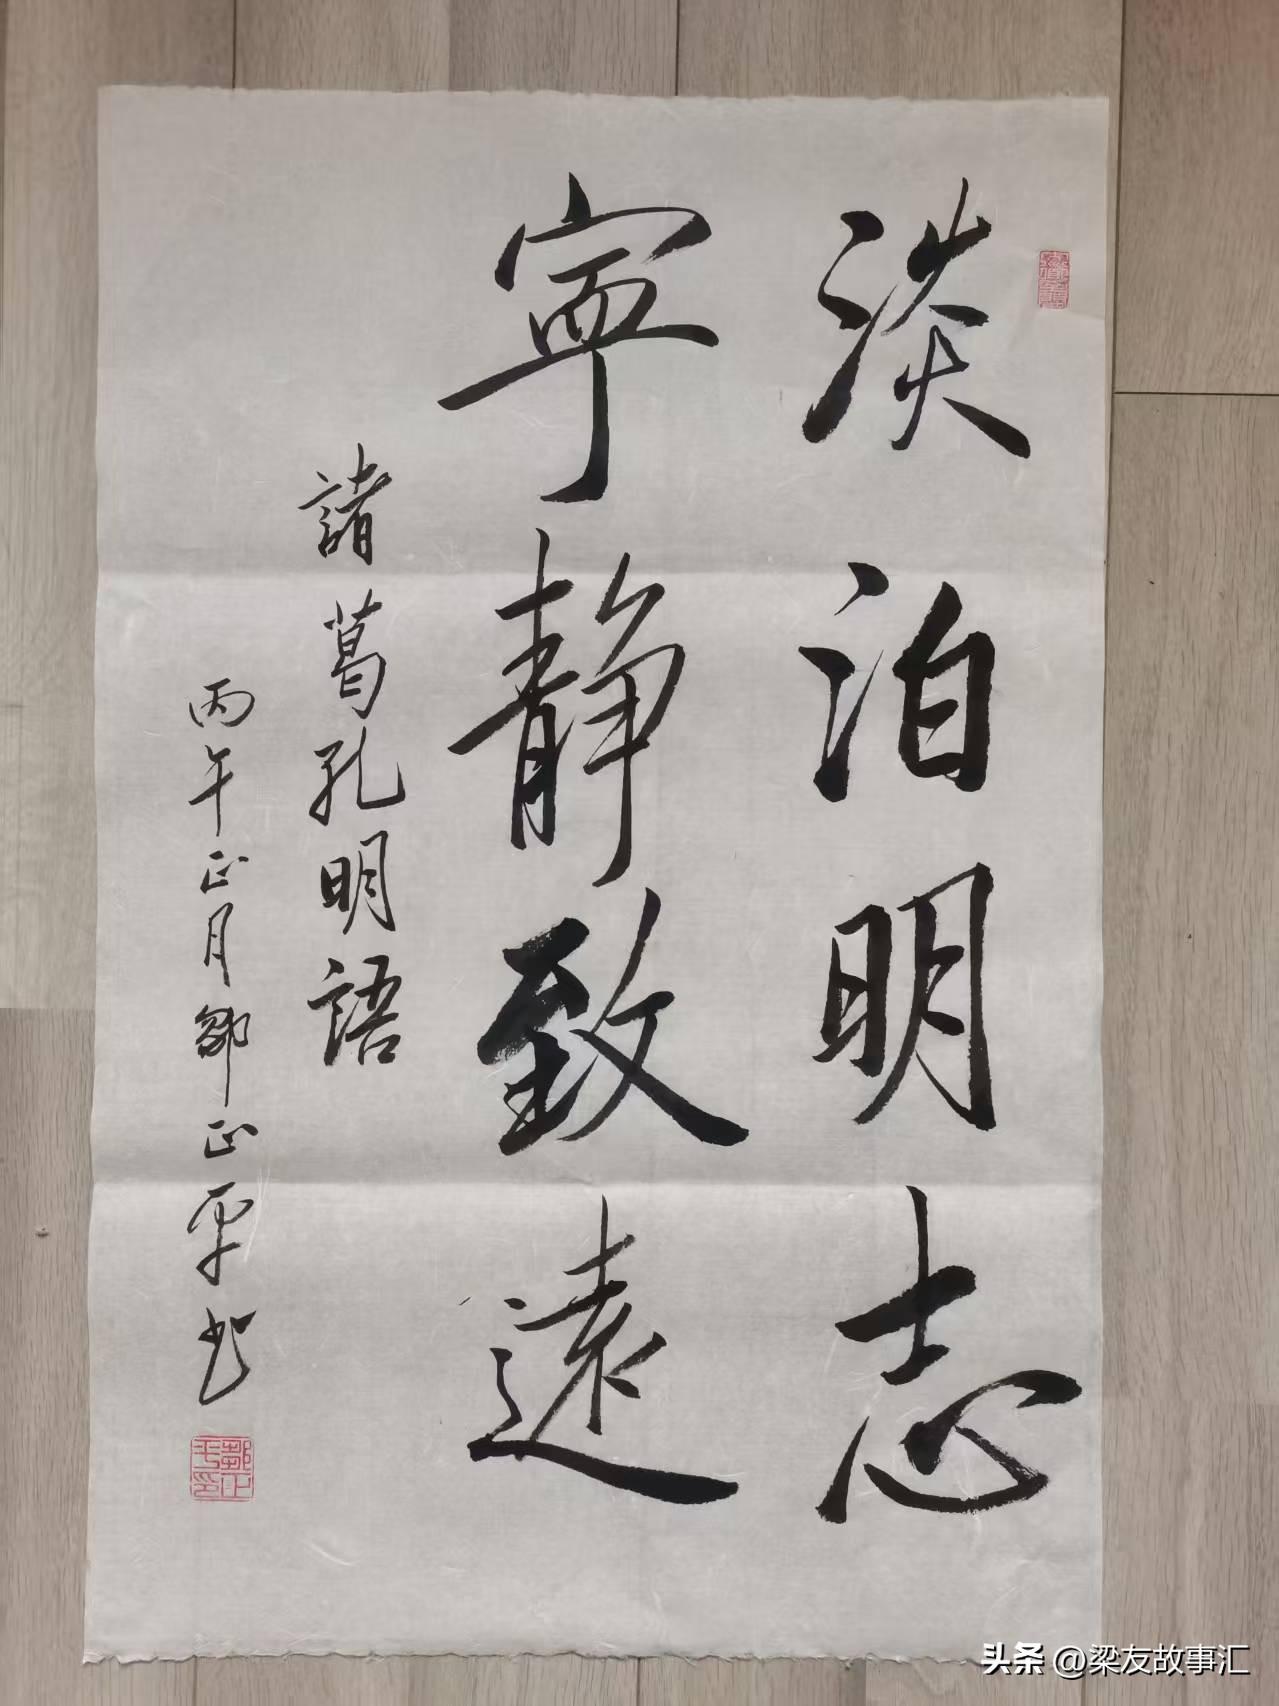 淡泊明志
寧静致遠
諸葛孔明語
丙午正月鄒正平书
鄒正平印
头条 @梁友故事汇